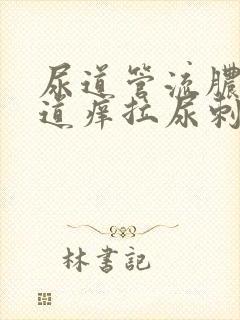 尿道管流膿
道痒拉尿刺
林書記